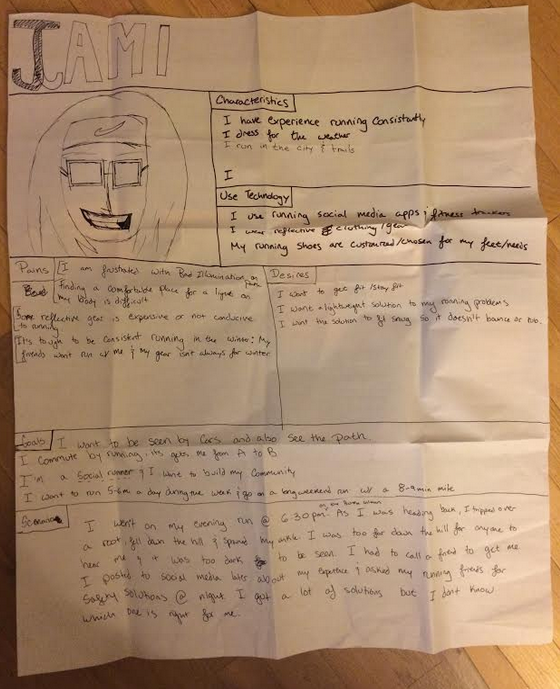 JAMI
Characteristics
I have experience running consistantly
I dress for the weather
I run in the city & trails
I
Use Technology
I use running social media apps & fitness trackers
I wear reflective clothing/gear
My running shoes are customized/chosen for my feet/needs
Pains
I am frustrated with Bad Illumination on Path
Finding a comfortable place for a light on
my body is difficult
Some reflective gear is expensive or not conducive
to running
It's tough to be consistent running in the winter: My
friends wont run w/ me & my gear isn't always for winter
Desires
I want to get fit/stay fit
I want a lightweight solution to my running problems
I want the solution to fit snug so it doesn't bounce or rub.
Goals
I want to be seen by Cars and also see the path.
I commute by running. it gets me from A to B
I'm a Social runner & I want to build my Community
I want to run 5-6m a day during the week & go on a long weekend run w/ a 8-9 min mile
Scenario
I went on my evening run @ 6:30pm. As I was heading back, I tripped over
a root, fell down the hill & sprained my ankle. I was too far down the hill for anyone to
hear me & it was too dark to be seen. I had to call a friend to get me.
I posted to social media later about my experience & asked my running friends for
Safety Solutions @ night. I got a lot of solutions but I don't know
which one is right for me.